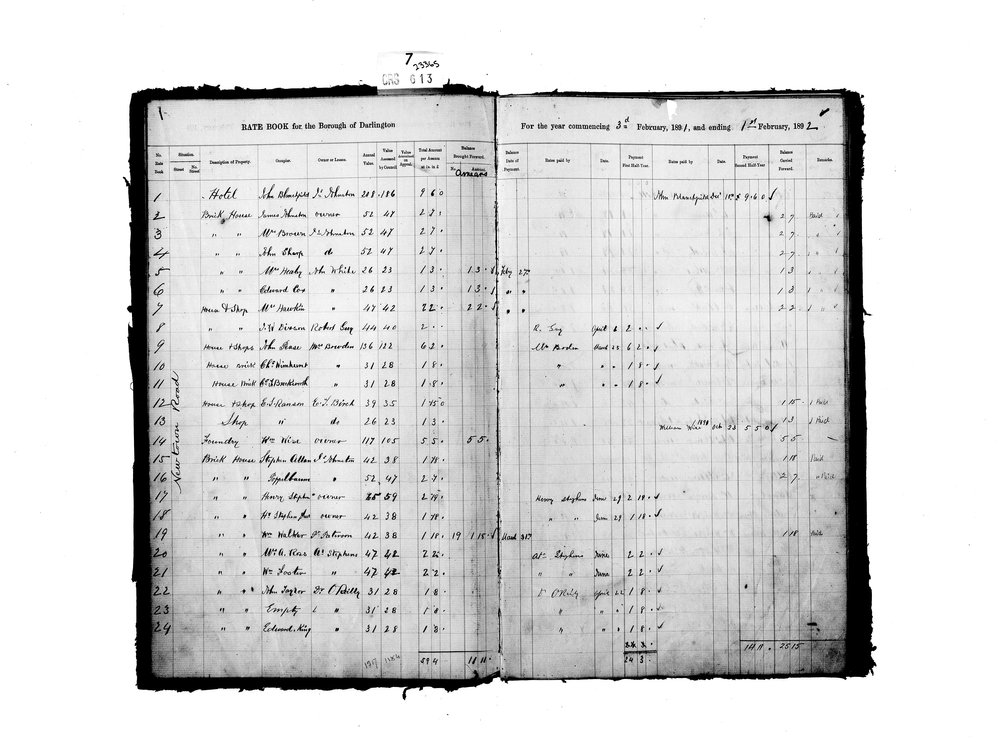 7
23365
CRS 613
1
RATE BOOK for the Borough of Darlington
For the year commencing 3rd February, 1891, and ending 1st February, 1892
No. Rate Book Situation. Street No. Street Description of Property. Occupier. Owner or Lessee. Annual Value. Value Assessed by Council Value Assessed on Appeal. Total Amount per Annum at 1s. in £ Balance Brought Forward. No. Amount. Arrears
Balance Date of Payment. Rates paid by Date. Payment First Half-Year. Rates paid by Date. Payment Second Half-Year Balance Carried Forward. Remarks.
Newtown Road
1 Hotel John Blanchfield Jn Johnston 208 186 9 6 0 John Blanchfield Dec 18th 9 6 0
2 Brick House James Johnston owner 52 47 2 7 2 7 Paid
3 " " Mrs Brown Jn Johnston 52 47 2 7 2 7 "
4 " " John Sharp do 52 47 2 7 2 7
5 " " Mrs Healy John White 26 23 1 3 1 3 Feby 27 1 3
6 " " Edward Cox " 26 23 1 3 1 3 " " 1 3
7 House & Shop Mrs Hawkin " 47 42 2 2 2 2 " " 2 2
8 " " Robert Guy 44 40 2 R. Guy April 6 2
9 House & Shops John Pease Mrs Bowden 136 122 6 2 Mrs Boden March 23 6 2
10 House Brick Chs " 31 28 1 8 " " " 1 8
11 House Brick " 31 28 1 8 " " " 1 8
12 House & Shop E. J. Ranson E. J. Birch 39 35 1 15 0 1 15 Paid
13 Shop " do 26 23 1 3 1 3 Paid
14 Foundry Wm Wise owner 117 105 5 5 5 5 William Wise 1891 Oct 23 5 5 0 5 5
15 Brick House Stephen Allan Jn Johnston 42 38 1 18 1 18 Paid
16 " " Poppelbaum " 52 47 2 7 2 7 Paid
17 " " Henry Stephens owner 65 59 2 19 Henry Stephens June 29 2 19
18 " " Hy Stephens Jnr owner 42 38 1 18 " " June 29 1 18
19 " " Wm Walker Paterson 42 38 1 18 19 1 18 March 31st 1 18
20 " " Mrs A. Ross Stephens 47 42 2 2 Stephens June 2 2
21 " " Wm Foster " 47 42 2 2 " " June 2 2
22 " " John Taylor Dr O'Reilly 31 28 1 8 O'Reilly April 22 1 8
23 " " Empty " 31 28 1 8 " " " 1 8
24 " " Edward King " 31 28 1 8 " " " 1 8
59 4 11 11 24 3 14 11 25 15